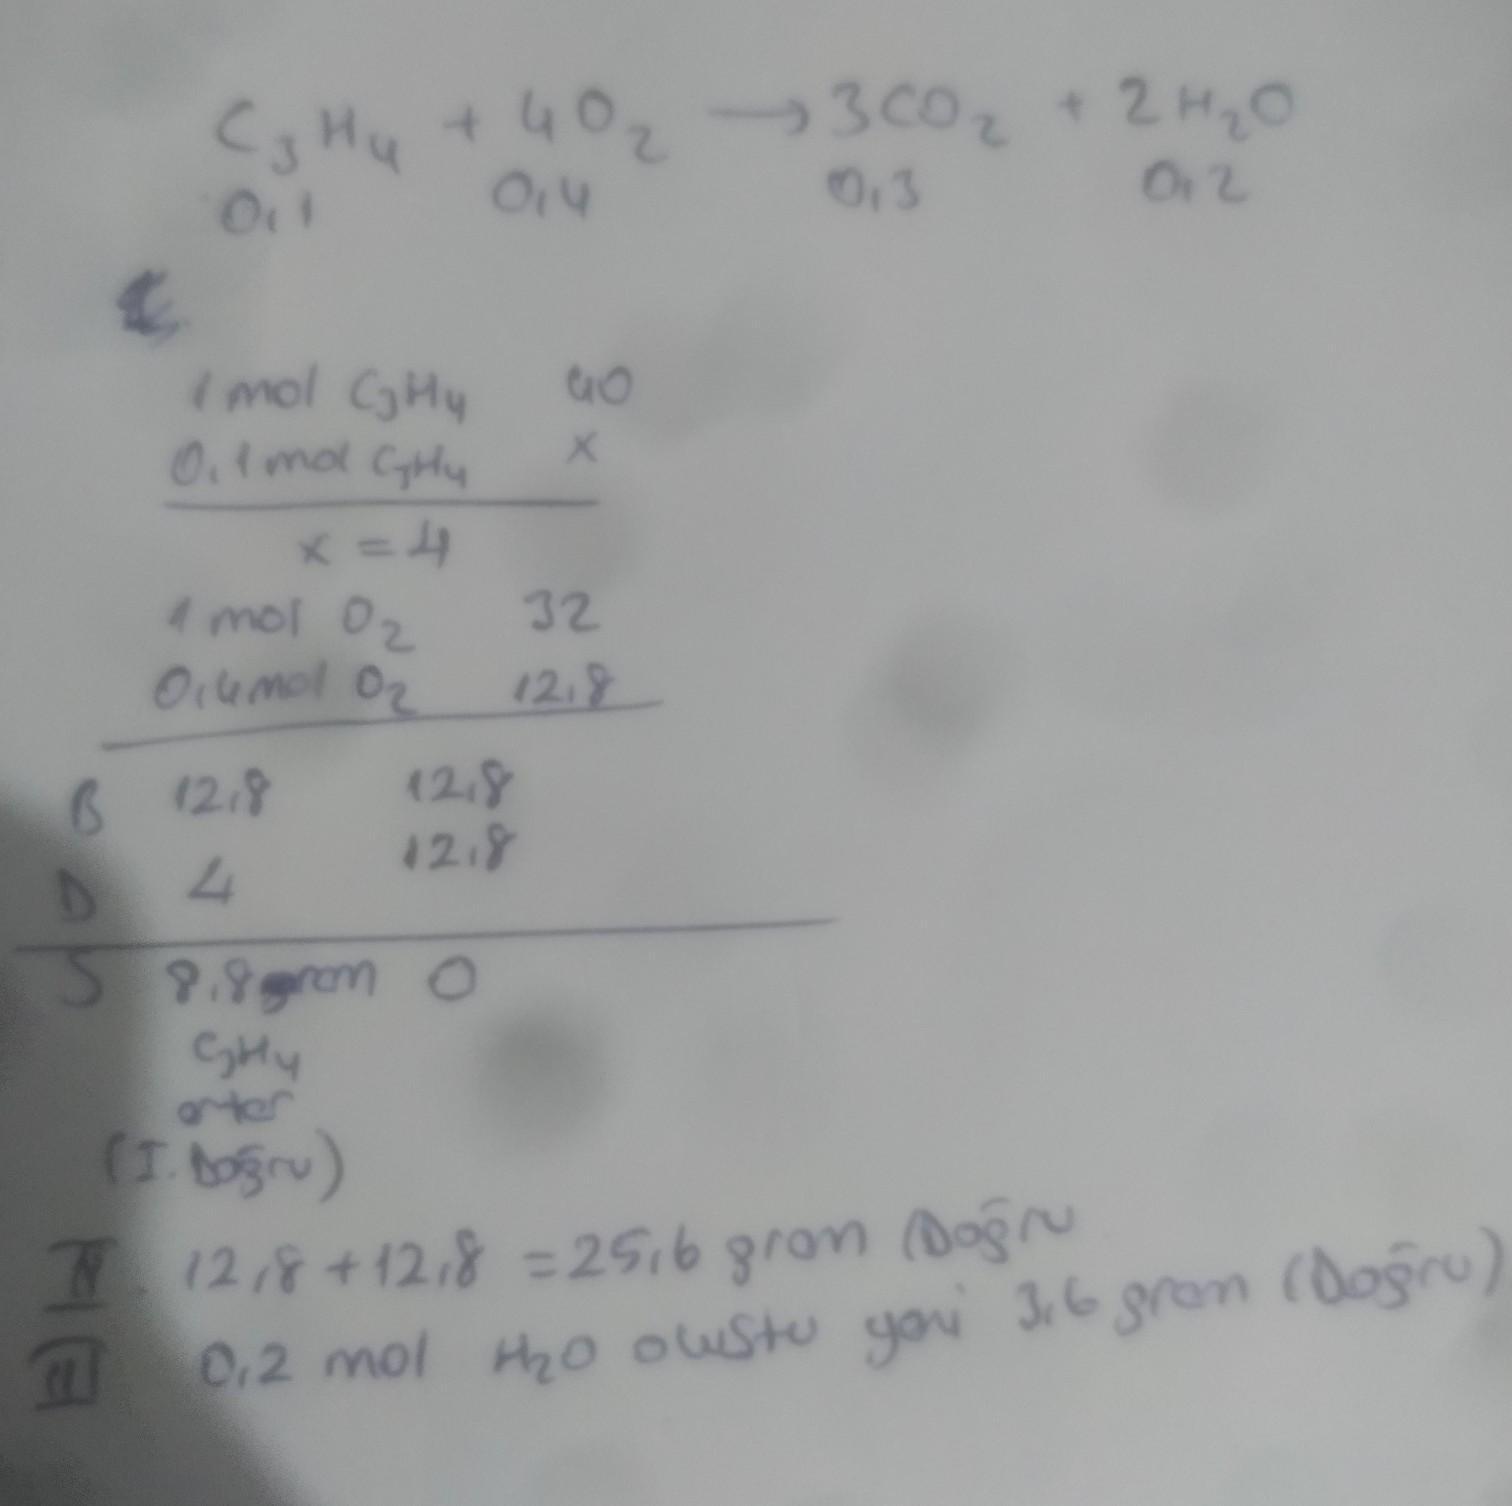 C₃H₄ + 4O₂ → 3CO₂ + 2H₂O
0,1 0,4 0,3 0,2
1 mol C₃H₄ 40
0,1 mol C₃H₄ x
x = 4
1 mol O₂ 32
0,4 mol O₂ 12,8
B 12,8 12,8
D 4 12,8
S 8,8 gram 0
C₃H₄
artar
(I. Doğru)
II. 12,8 + 12,8 = 25,6 gram (Doğru
III 0,2 mol H₂O oluştu yani 3,6 gram (Doğru)